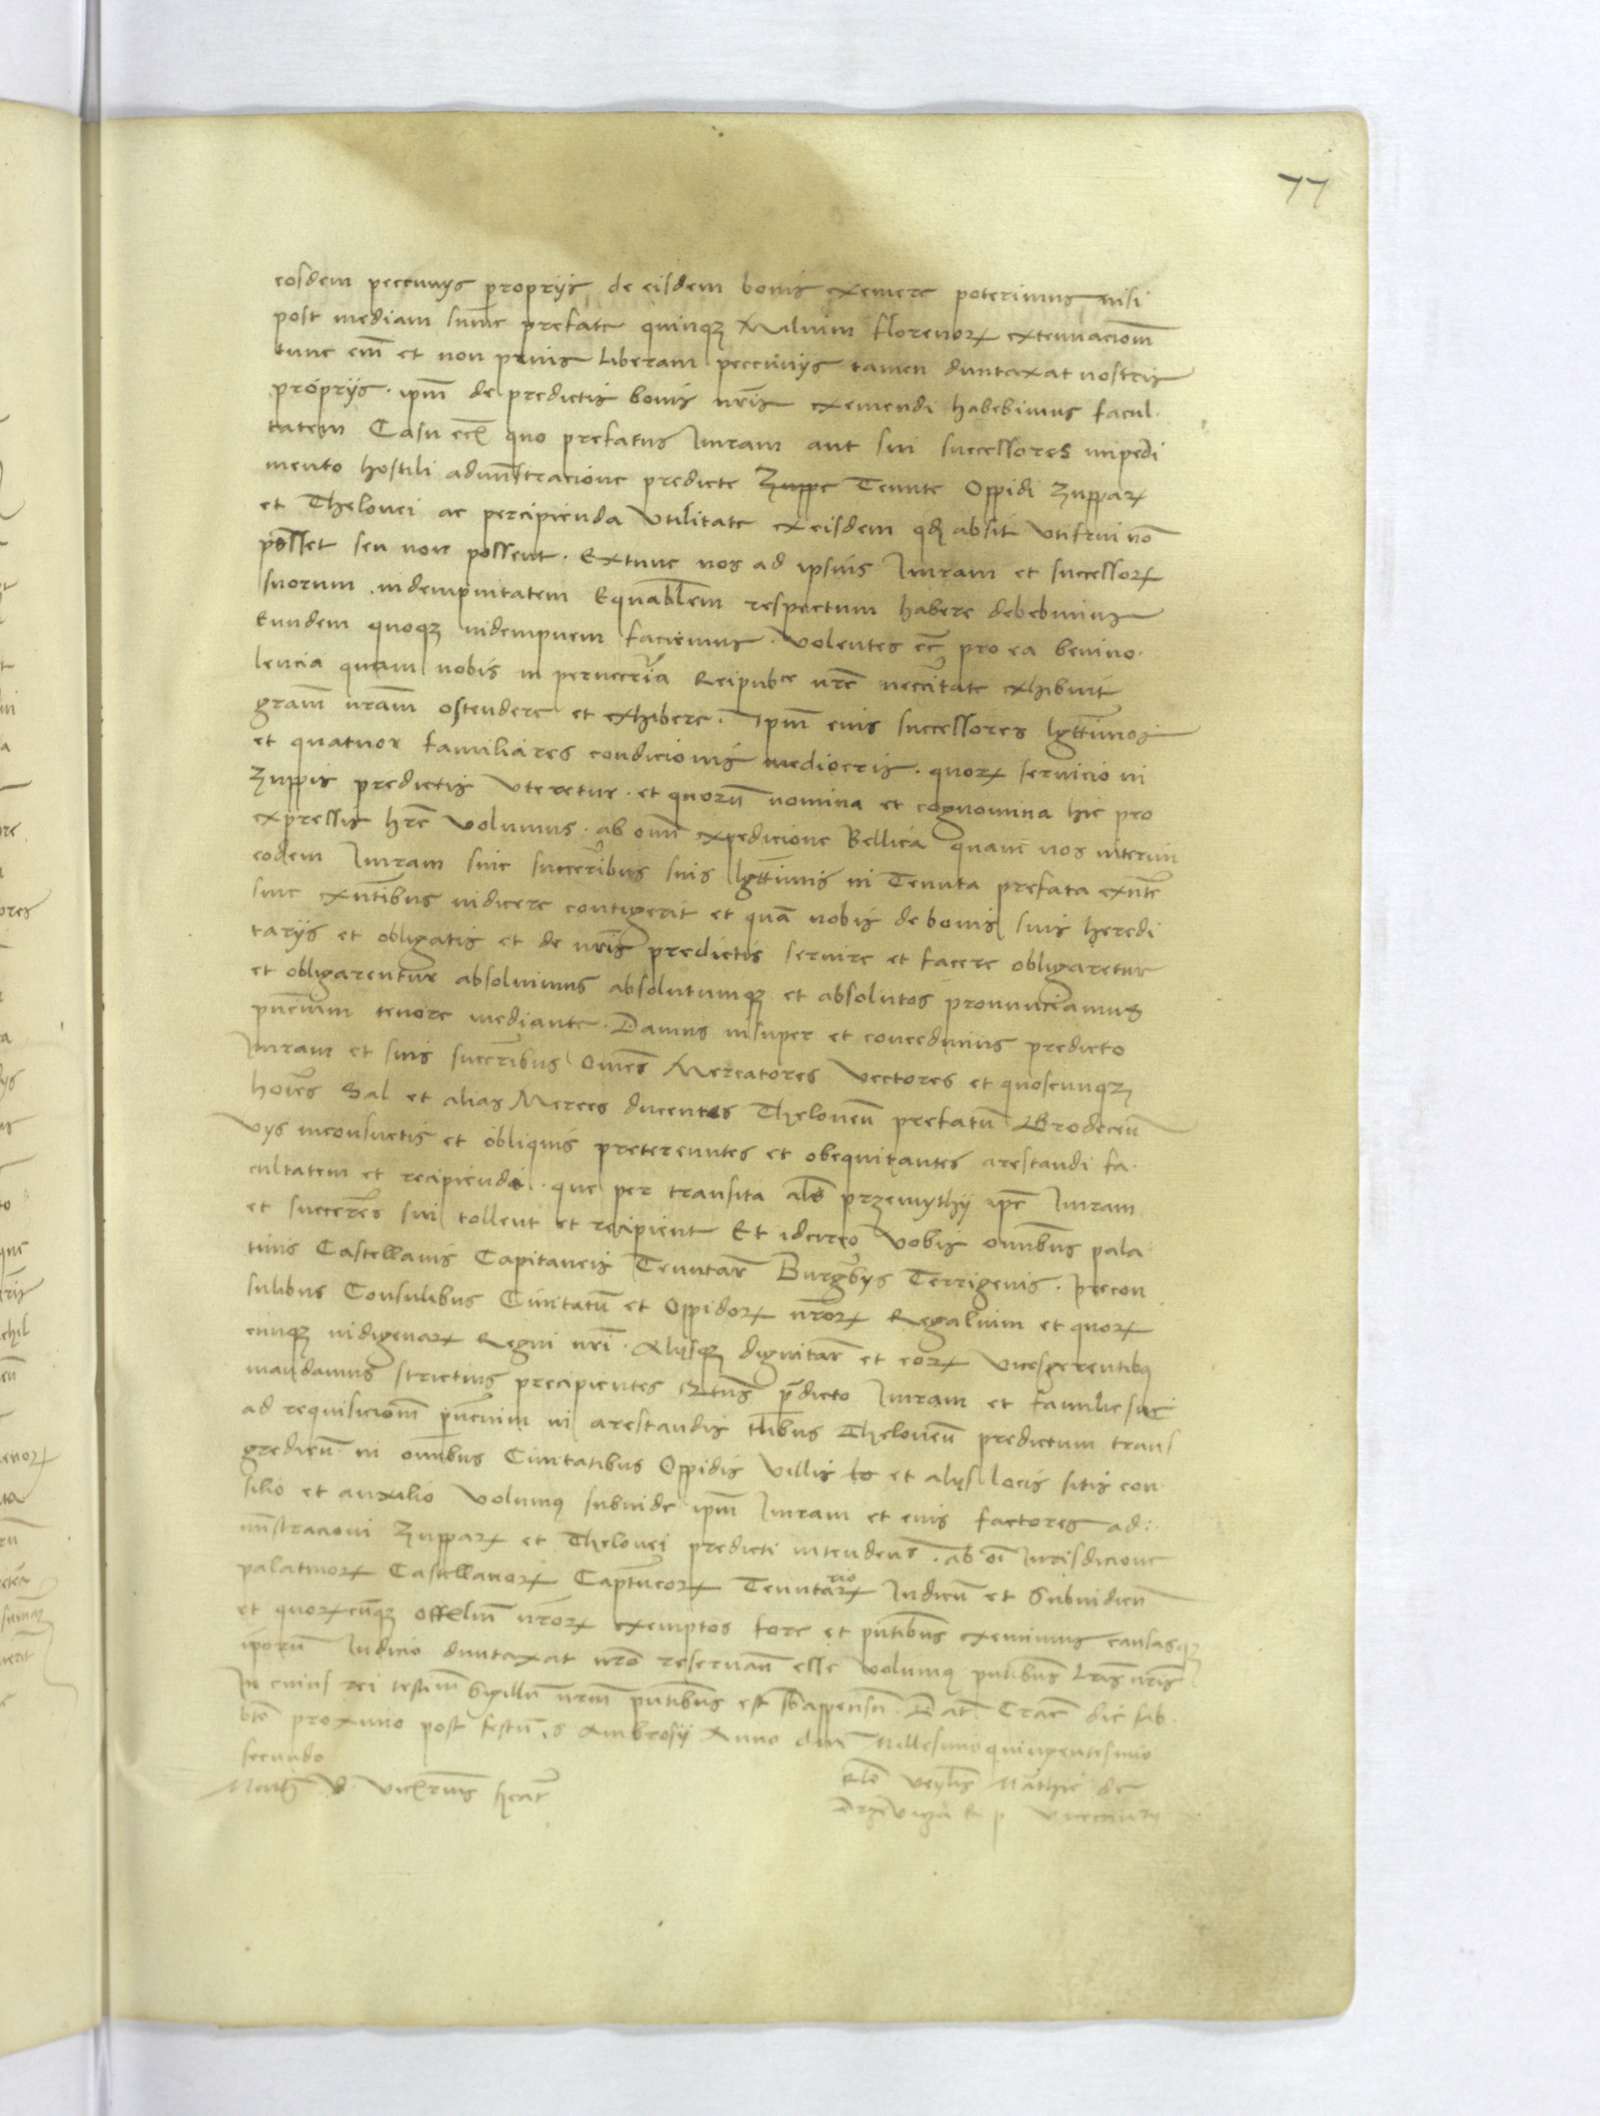 77
eosdem peccunys proprijs de eisdem bonis exemere poterimus nisi
post mediam sume prefate quinqꝫ Milium florenorꝝ extenuaciom̄
tunc em̄ et non prius Liberam peccunys tamen duntaxat nostris
proprijs . ipm̄ de predictis bonis nr̄is exemendi habebimus facul
tatem Casu ecꝫ quo prefatus Imram aut sui successores impedi
mento hostili adm̄stracione predicte Zuppe Tenute Oppidi Zupparꝝ
et Thelonei ac percipienda Vtilitate ex eisdem qd̄ absit Vtifrui nō
posset seu non possent . Extunc nos ad ipsius Imram et successorꝝ
suorum indempnitatem Equabłem respectum habere debebimus
Eundem quoqꝫ indempnem faciemus . Volentes ec̄ pro ea benivo
lencia quam nobis in pernecr̄ia Reipubce nr̄e neccitate exhibuit
gram̄ nram̄ ostendere et exhibere . Ipm̄ eius successores lgttimos
et quatuor familiares condicionis mediocris . quorꝝ servicio in
Zuppis predictis Vteretur . et quorū nomina et cognomina hic pro
expressis hr̄e Volumus . ab omī expedicione Bellica quam nos interim
eodem Imram sive succeribus suis lgttimis in Tenuta prefata exn̄te
sive exn̄tibus indicere contigerit et quā nobis de bonis suis heredi
tarijs et obligatis et de nr̄is predictis servire et facere obligaretur
et obligarentur absolvimus absolutumqꝫ et absolutos pronunciamus
pn̄cium tenore mediante . Damus insuper et concedimus predicto
Imram et suis succeribus Omēs Mercatores Vectores et quoscunqꝫ
hoīes Sal et alias Merces ducentes Theloneū prefatū Brodeceū
Vys inconsuetis et obliquis pretereuntes et obequitantes arestandi fa
cultatem et recipiendi . que per transita als przemythij ipē Imram
et succeres sui tollent et recipient Et idcirco Vobis omībus pala
tinis Castellanis Capitaneis Tenutar̄ Burgbys Terrigenis . Procon
sulibus Consulibus Civitatū et Oppidorꝝ nr̄orꝝ Regalium et quorꝝ
cunqꝫ indigenarꝝ Regni nr̄i . Alysqꝫ dignitar̄ et eorꝝ Vicesgerentibꝰ
mandamus strictius precipientes Qtus p̄dicto Imram et familie sue
ad requisiciom̄ pn̄cium in arestandis tłibus Theloneū predictum trans
gredieñ in omībus Civitatibus Oppidis Villis et alys locis sitis con
silio et auxilio Volumꝰ subinde ipm̄ Imram et eius factores ad
mnstracioni Zupparꝝ et Thelonei predicti intendent . ab oī Jurisdicione
palatinorꝝ Castellanorꝝ Captneorꝝ Tenutariorꝝ Judicū et Subiudicū
et quorꝝcūqꝫ offłium nr̄orꝝ exemptos fore et pn̄tibus eximimus causasqꝫ
ip̄orū Judicio duntaxat nr̄o reservan̄ esse Volumꝰ pn̄tibus Lrās nr̄is
In cuius rei testim̄ Sigillū nrm̄ pn̄tibus est sbappensū . Dat̄ Crac̄ die sab
bto proximo post festū s Ambrosij Anno dnī Millesimo quingentesimo
secundo
Rłō
Mathie de